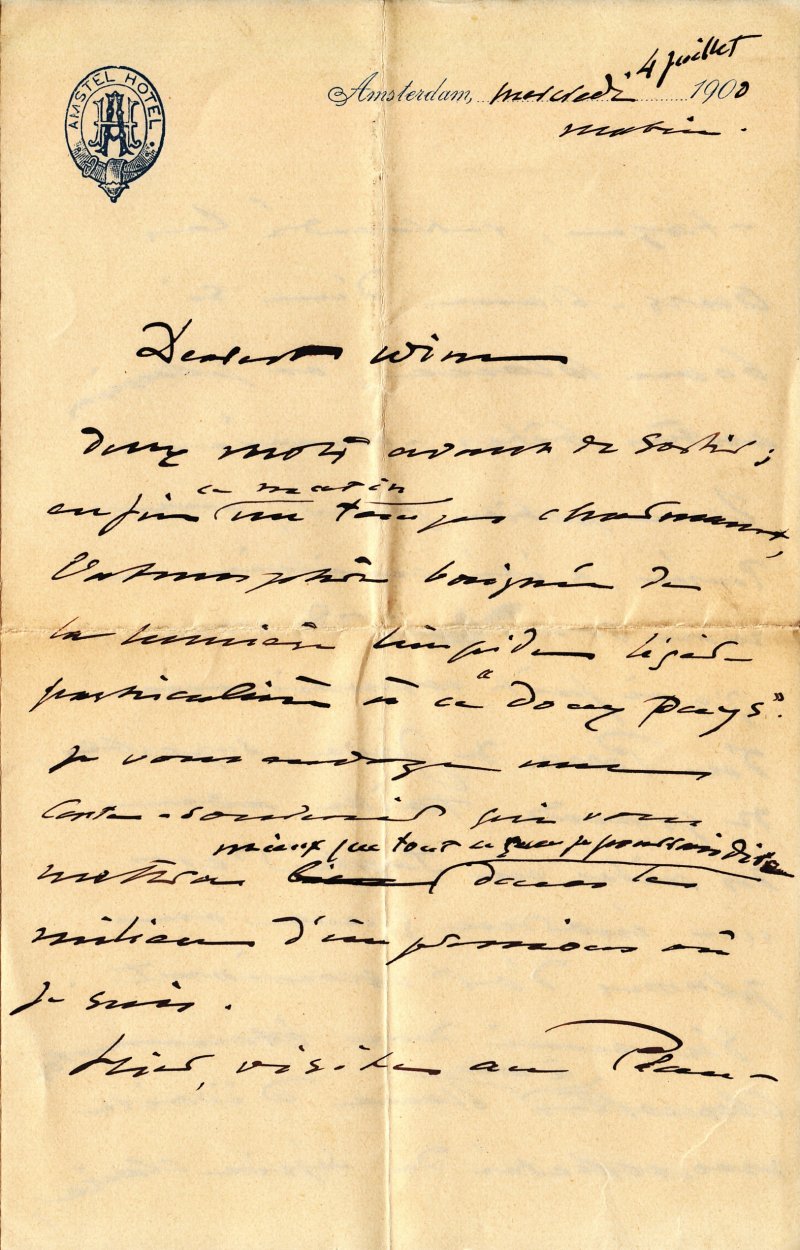 AMSTEL HOTEL
Amsterdam, mercredi 4 juillet 1900
matin.
Dearest Wim
Deux mots avant de sortir;
enfin ce matin un temps charmant,
l'atmosphère baignée de
la lumière limpide légère
particulière à ce "doux pays".
Je vous envoye une
carte-souvenir qui vous
mettra mieux que tout ce que je pourrais dire dans le
milieu d'impressions où
je suis.
Hier, visite au Plan-